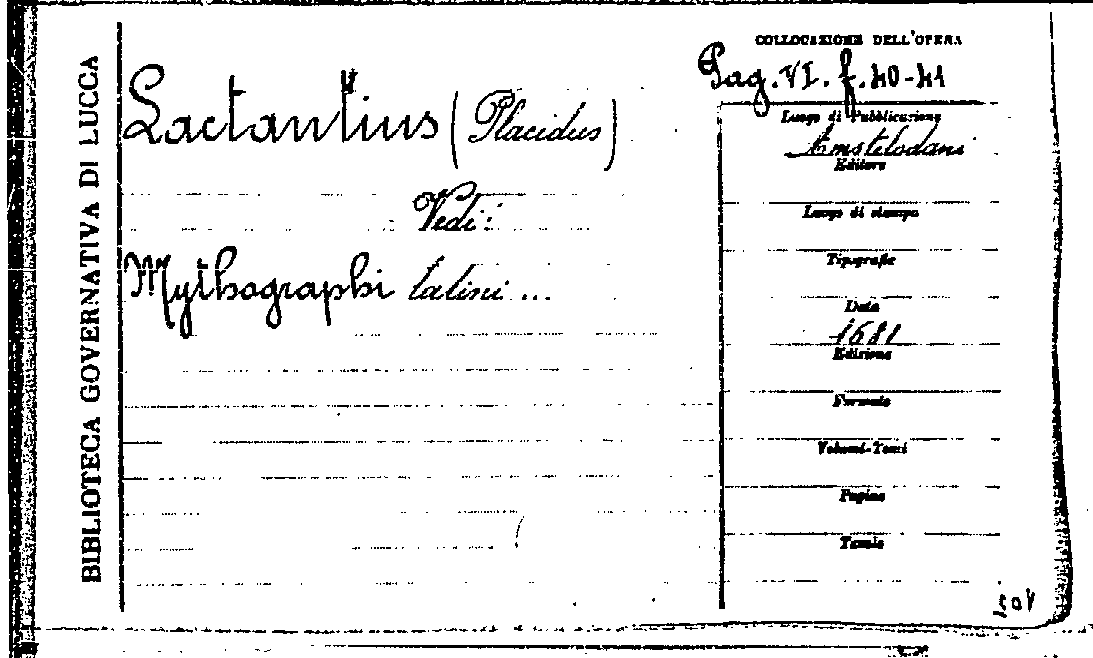 BIBLIOTECA GOVERNATIVA DI LUCCA
COLLOCAZIONE DELL'OPERA
Pag. VI. f. 40-41
Lactantius (Placidus)
Vedi:
Mythographi latini ...
Luogo di Pubblicazione
Amstelodami
Editore
Luogo di stampa
Tipografia
Data
1681
Edizione
Formato
Volumi-Tomi
Pagine
Tavole